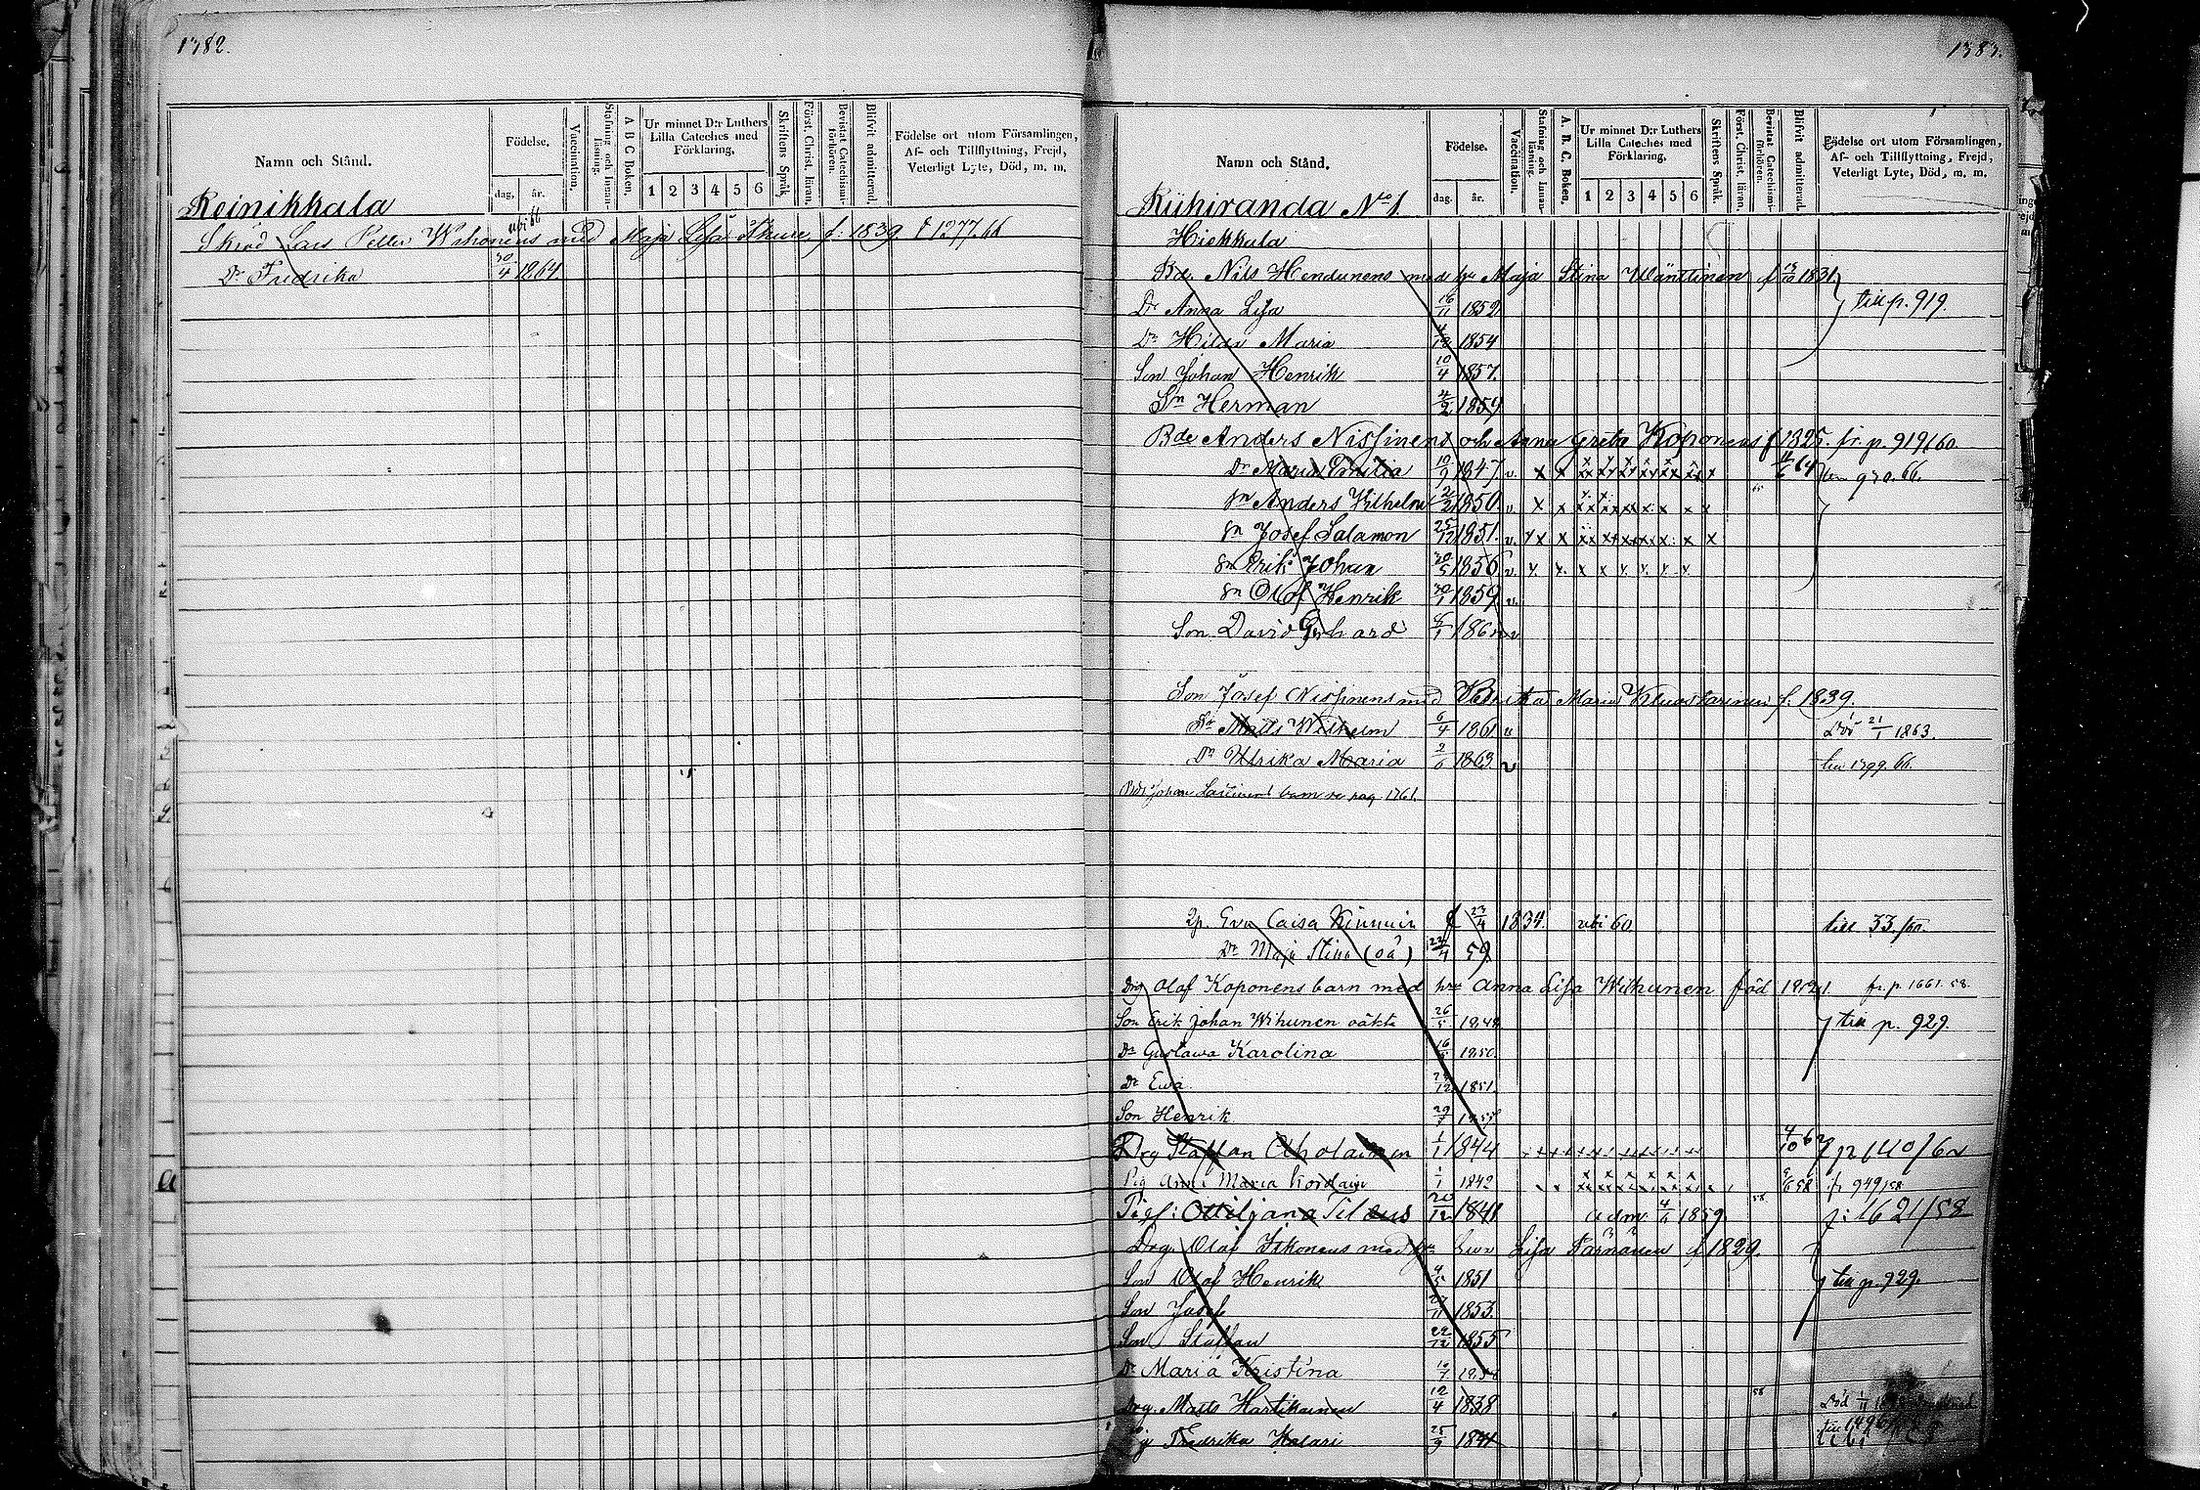 1382.
Namn och Stånd.
Födelse.
dag. år.
Vaccination.
Stafning och Innan-läsning.
A B C Boken.
Ur minnet D:r Luthers Lilla Cateches med Förklaring.
1 2 3 4 5 6
Skriftens Språk.
Först. Christ. läran.
Bevistat Catechismi-förhören.
Blifvit admitterad.
Födelse ort utom Församlingen, Af- och Tillflyttning, Frejd, Veterligt Lyte, Död, m. m.
Reinikkala
ubi 66
Skräd Lars Petter Wahonens med Maja Lisa Thure f: 1839. t 1277.66
Dr Fredrika 30/4 1864
1383.
Namn och Stånd.
Födelse.
dag. år.
Vaccination.
Stafning och Innan-läsning.
A. B. C. Boken.
Ur minnet D:r Luthers Lilla Cateches med Förklaring.
1 2 3 4 5 6
Skriftens Språk.
Först. Christ. läran.
Bevistat Catechismi-förhören.
Blifvit admitterad.
Födelse ort utom Församlingen, Af- och Tillflyttning, Frejd, Veterligt Lyte, Död, m. m.
Riihiranda No 1.
Hiekkala
Bd. Nils Hendunens med hu Maja Stina Wänttinen f 1831
Dr Anna Lisa 16/11 1852 till p. 919.
Dr Hilda Maria 1854
Son Johan Henrik 10/4 1857.
Sn Herman 4/2 1859
Bde Anders Nissinens och Anna Greta Koponens f 1325. fr. p. 919/60
Dr Maria Emilia 10/9 1847 v. x x 64 930.66.
sn Anders Wilhelm 2/2 1850. v. x x
sn Josef Salamon 25/12 1851. v. x x
sn Erik Johan 30/5 1856 v. x. x.
sn Olof Henrik 30/1 1859 v.
Son David Gerhard 186
Son Josef Nissinens med Maria Kluostarinen f. 1839.
Sn Matts Wilhelm 6/4 1861 v Död 21/1 1863.
Dr Ulrika Maria 2/6 1863. v till 1399.66.
Johan barn se pag 1761.
Eva Caisa Kinnuin f 23/4 1834. ubi 60 till 33/60.
Dr Maja Stina (oä) 22/4 59
Drg Olaf Koponens barn med hu Anna Lisa Wihunen föd 1821. fr. p. 1661. 58.
Son Erik Johan Wihunen oäkta 26/5 1848 till p. 929.
Dr Gustava Karolina 1850.
Dr Ewa 1851.
Son Henrik 29/7
Drg Staffan Aholainen 1/1 1844 4/10 62 p 140/62
Pig Anna Maria Kordain 1/1 1842 58 fr 949/58
Pigf: Ottiljana Tilaus 20/12 1841 adm. 4/6 1859. f: 1621/58
Drg. Olof Ikonens med hu Eva Lisa Parnanen f 1829.
Son Olof Henrik 4/5 1851 till p. 929.
Son Josef 1853.
Son Staffan 22/12 1855
Dr Maria Kristina
Drg. Matts Hartikainen 12/4 1838 58 Död
Fredrika Halari 25/9 1841